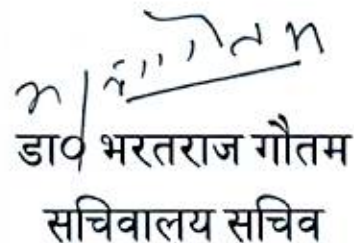 डा० भरतराज गौतम
सचिवालय सचिव